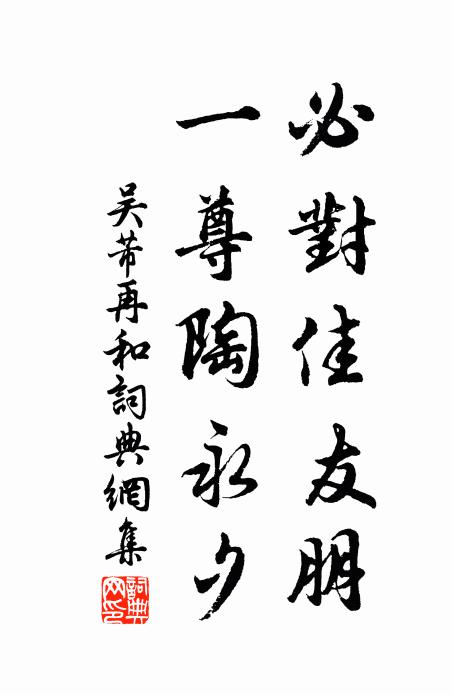 必對佳友朋
一尊陶永夕
吳芾再和詞典網集
詞典網印